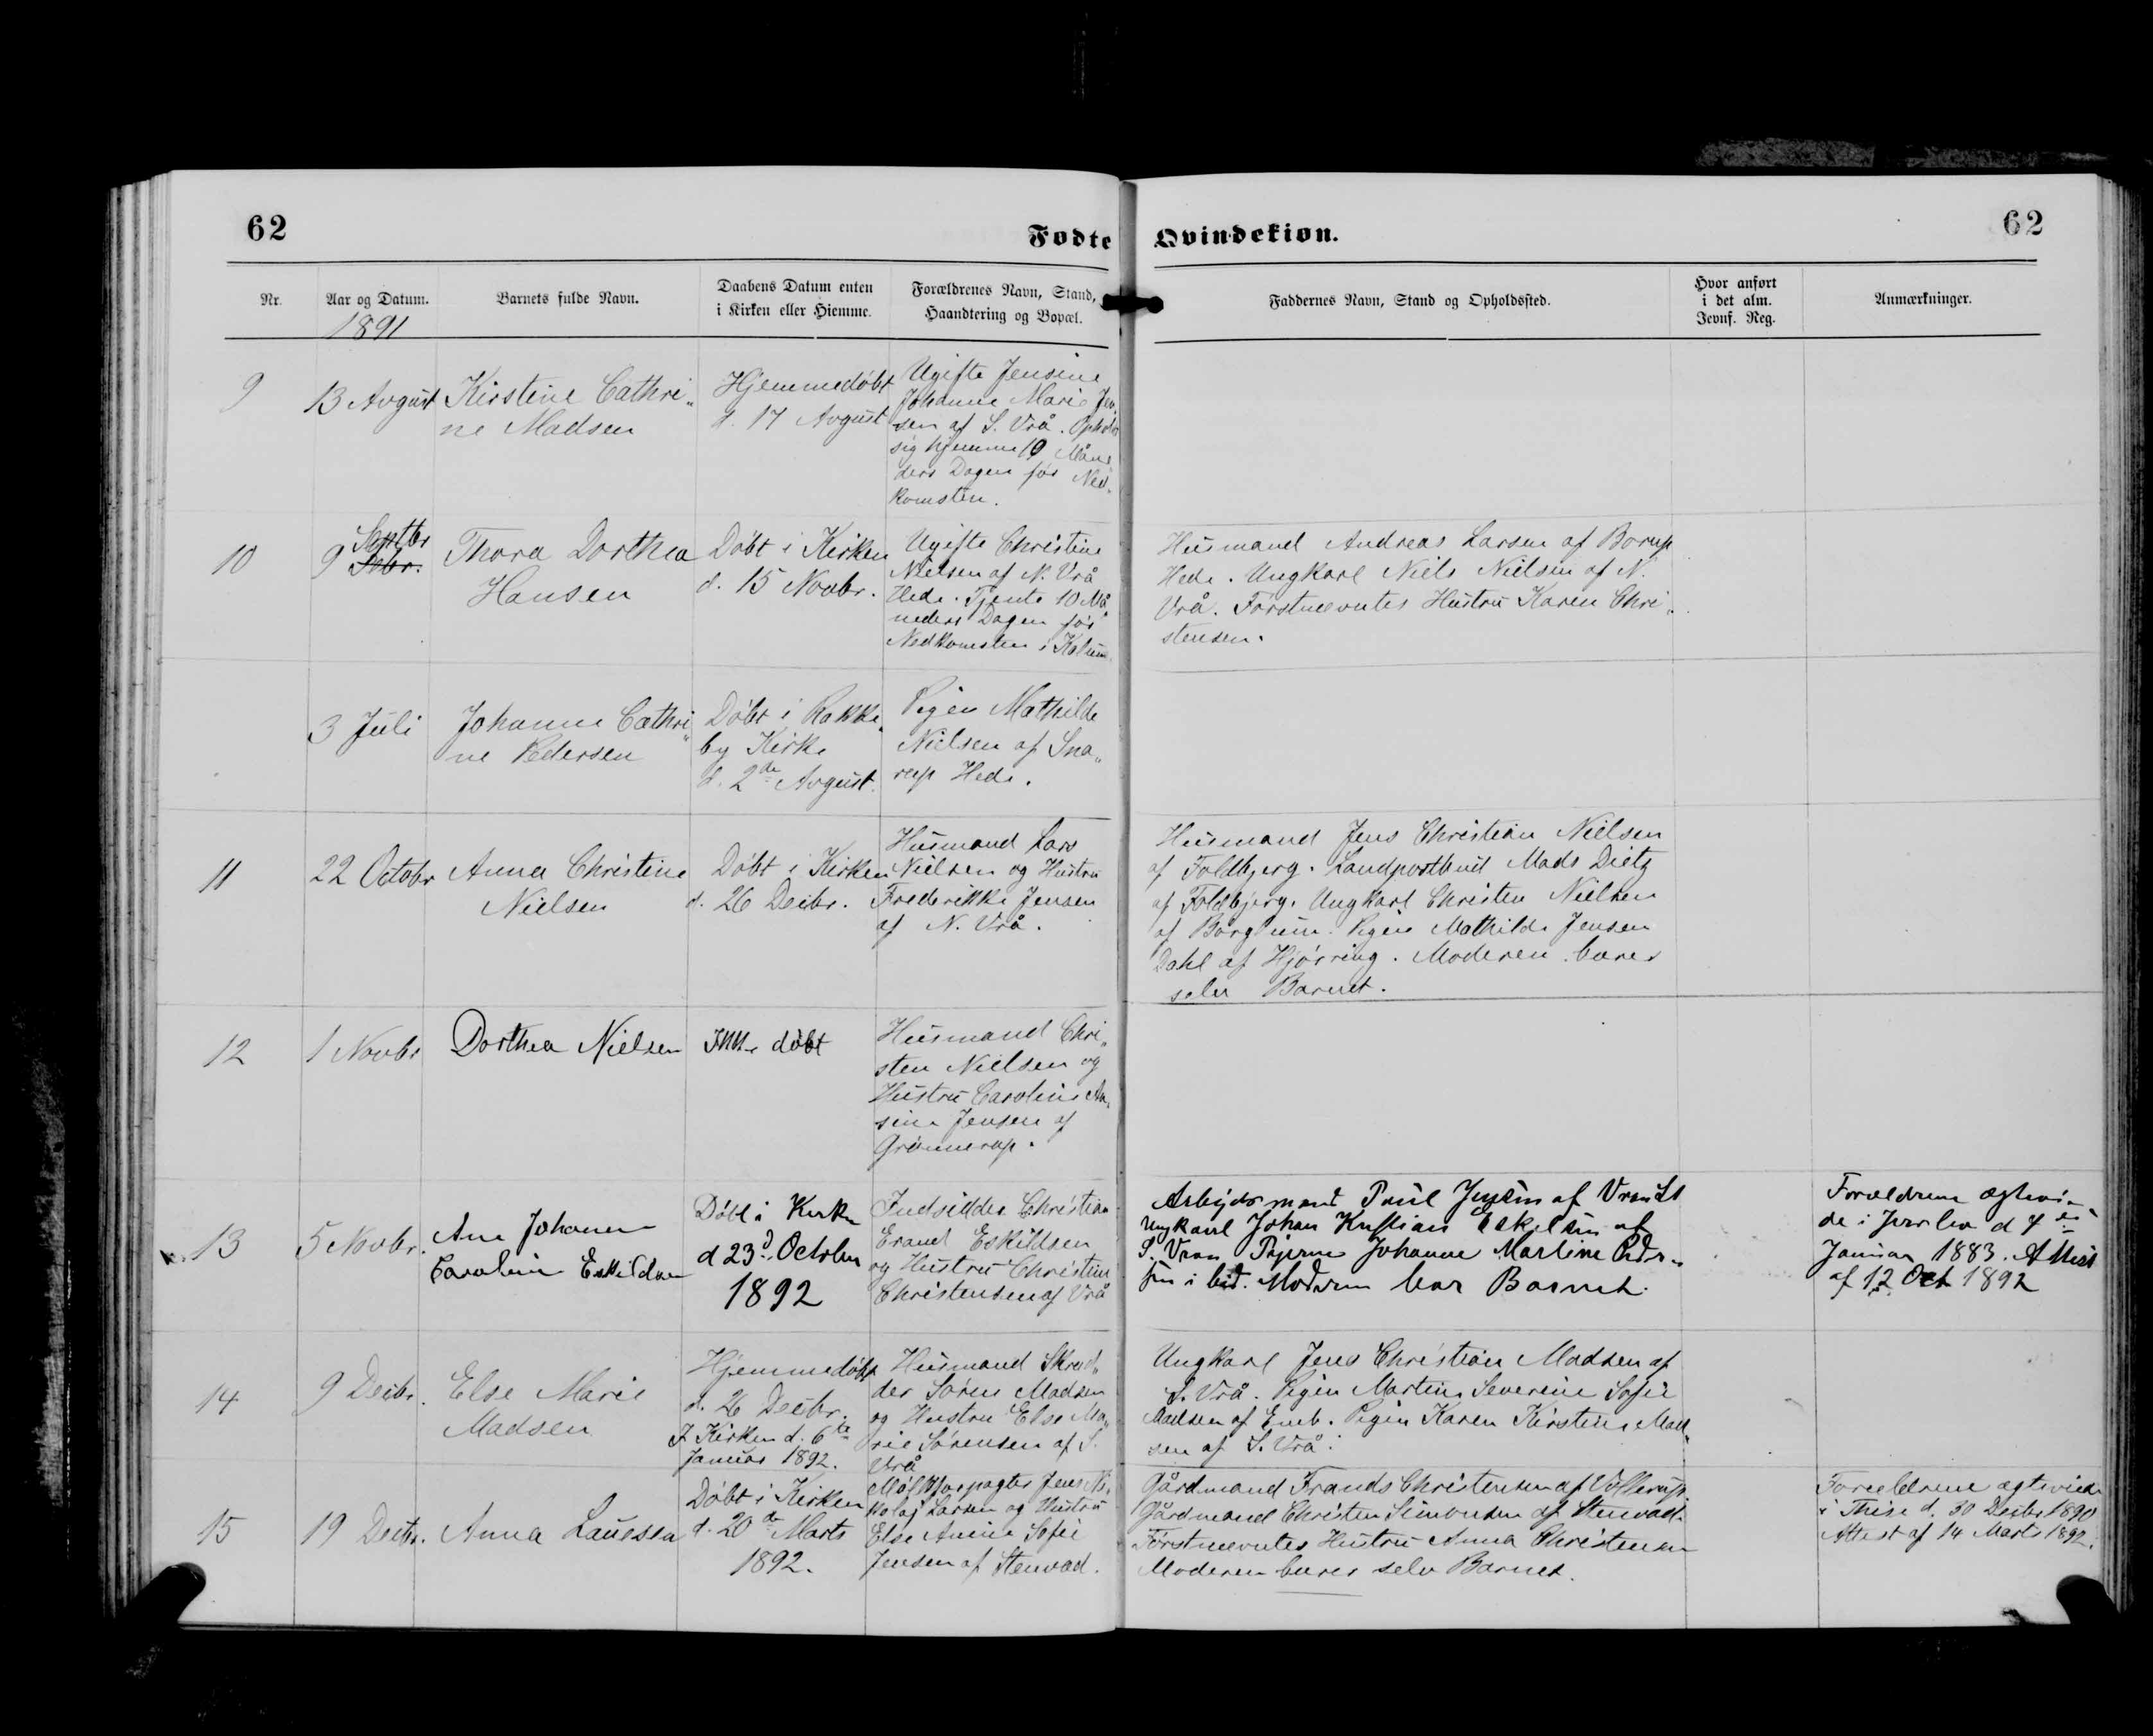 62
Fødte
Qvindekiøn.
62
Nr.
Aar og Datum.
1891
Barnets fulde Navn.
Daabens Datum enten
i Kirken eller Hiemme.
Forældrenes Navn, Stand,
Haandtering og Bopæl.
Faddernes Navn, Stand og Opholdssted.
Hvor anført
i det alm.
Jevnf. Reg.
Anmærkninger.
9
13 Avgust
Kirstine Cathri„
ne Madsen
Hjemmedøbt
d. 17 Avgust
Ugifte Jensine
Johanne Marie Jen„
sen af S. Vrå. Opholdt
sig hjemme 10 Måne„
ders Dagen før Ned„
komsten.
10
9 Septbr
Thora Dorthea
Hansen
Døbt i Kirken
d. 15 Novbr.
Ugifte Christine
Nielsen af N. Vrå
Hede. Tjente 10 Må„
neders Dagen før
Nedkomsten i
Husmand Andreas Larsen af Borup
Hede. Ungkarl Niels Nielsen af N.
Vrå. Førstnævntes Hustru Karen Chri„
stensen.
3 Juli
Johanne Cathri„
ne Pedersen
Døbt i Rakke„
by Kirke
d. 2de Avgust.
Pigen Mathilde
Nielsen af Sna„
rup Hede.
11
22 Octobr
Anna Christine
Nielsen
Døbt i Kirken
d. 26 Decbr.
Husmand Lars
Nielsen og Hustru
Frederikke Jensen
af N. Vrå.
Husmand Jens Christian Nielsen
af Foldbjerg. Landpostbud Mads Dietz
af Foldbjerg. Ungkarl Christen Nielsen
af Børglum. Pigen Mathilde Jensen
Dahl af Hjørring. Moderen bares
selv Barnet.
12
1 Novbr
Dorthea Nielsen
Ikke døbt
Husmand Chri„
sten Nielsen og
Hustru Caroline An„
sine Jensen af
Grønnerup.
13
5 Novbr.
Ane Johanne
Caroline Eskildsen
Døbt i Kirken
d 23d October
1892
Indsidder Christian
Erand Eskildsen
og Hustru Christine
Christensen af Vrå
Arbejdsmand Poul Jensen af Vraa St
Ungkarl Johan Kristian Eskelsen af
S. Vraa Pigerne Johanne Martine Peder„
sen i bid. Moderen bar Barnet.
Forældrene ægtevi„
de i Jerslev d 4de
Januar 1883. Attest
af 12 Oct 1892
14
9 Decbr.
Else Marie
Madsen
Hjemmedøbt
d. 26 Decbr.
I Kirken d. 6te
Januar 1892.
Husmand Skræd„
der Søren Madsen
og Hustru Else Ma„
rie Sørensen af S.
Vrå
Ungkarl Jens Christian Madsen af
S. Vrå. Pigen Martine Severine Sofie
Madsen af Emb. Pigen Karen Kirstine Mad„
sen af S. Vrå.
15
19 Decbr.
Anna Lauesen
Døbt i Kirken
d. 20de Marts
1892.
Jens Ni„
kolaj Larsen og Hustru
Else Amine Sofie
Jensen af Stenvad.
Gårdmand Frands Christensen af Vollerup.
Gårdmand Christen Simonsen af Stenvad.
Førstnævntes Hustru Anna Christensen
Moderen bares selv Barnet.
Forældrene ægteviede
i Thise d. 30 Decbr 1890
Attest af 14 Marts 1892.